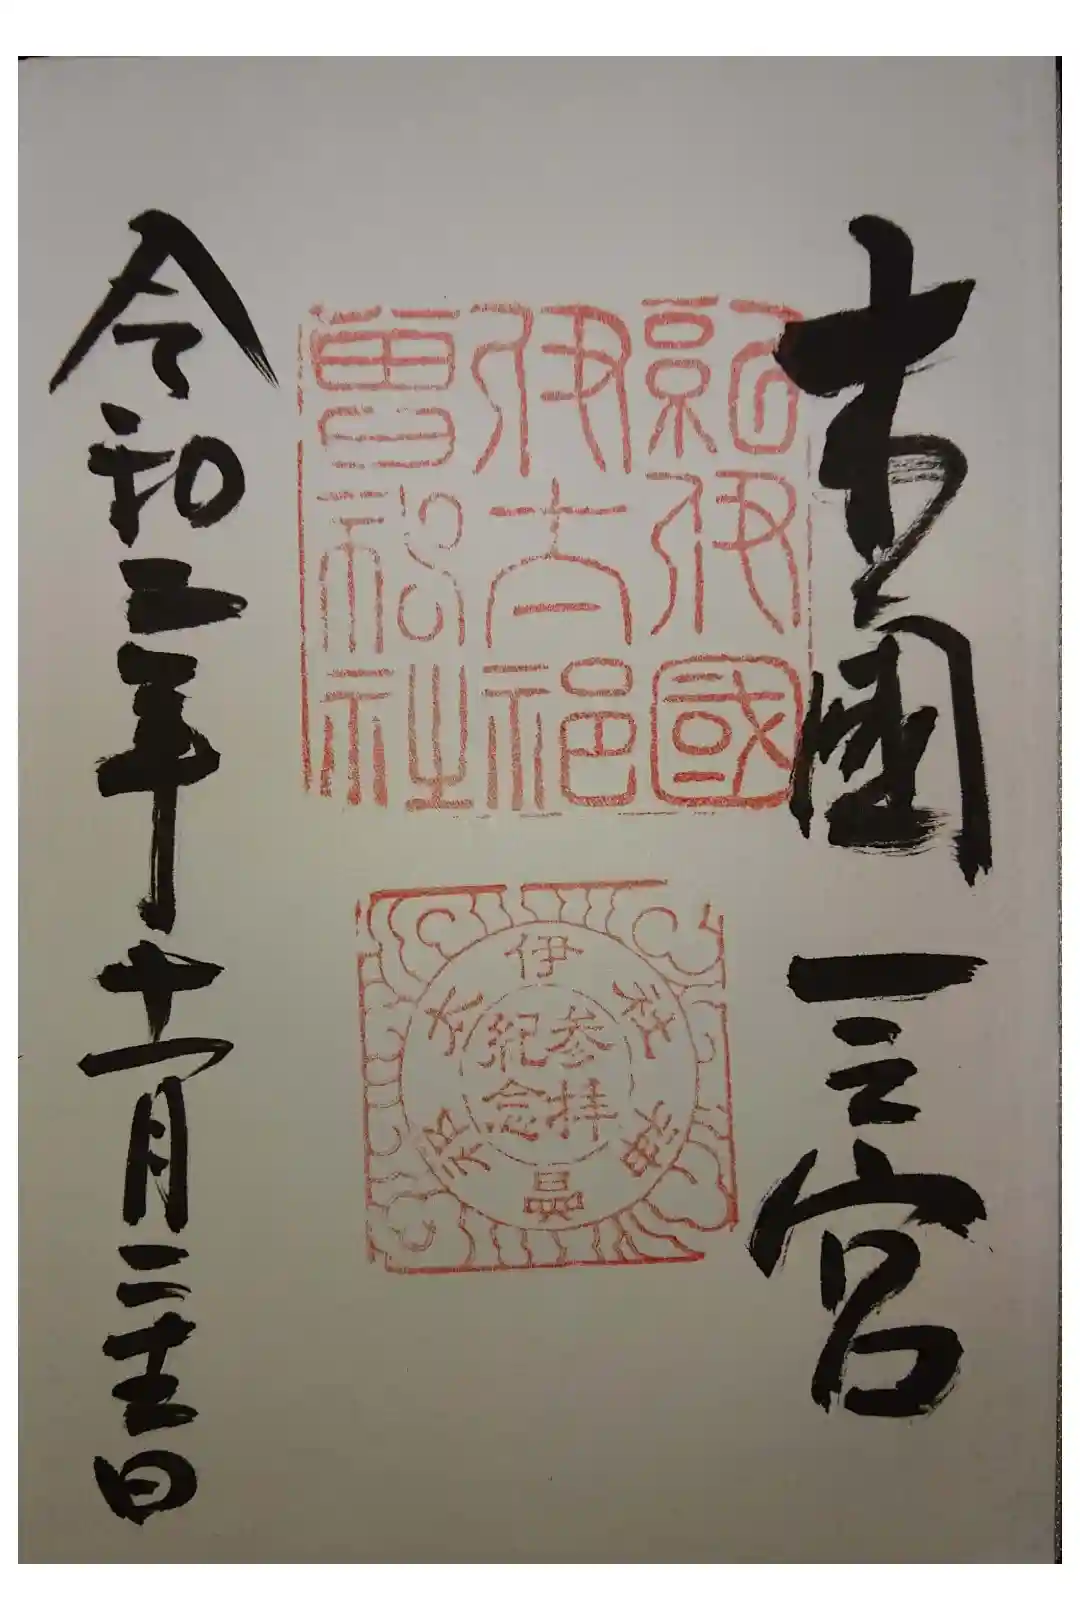 木國一之宮
紀伊國
伊太祁
曾神社
伊太祁曽神社
参拝
紀念
令和二年十一月二十二日